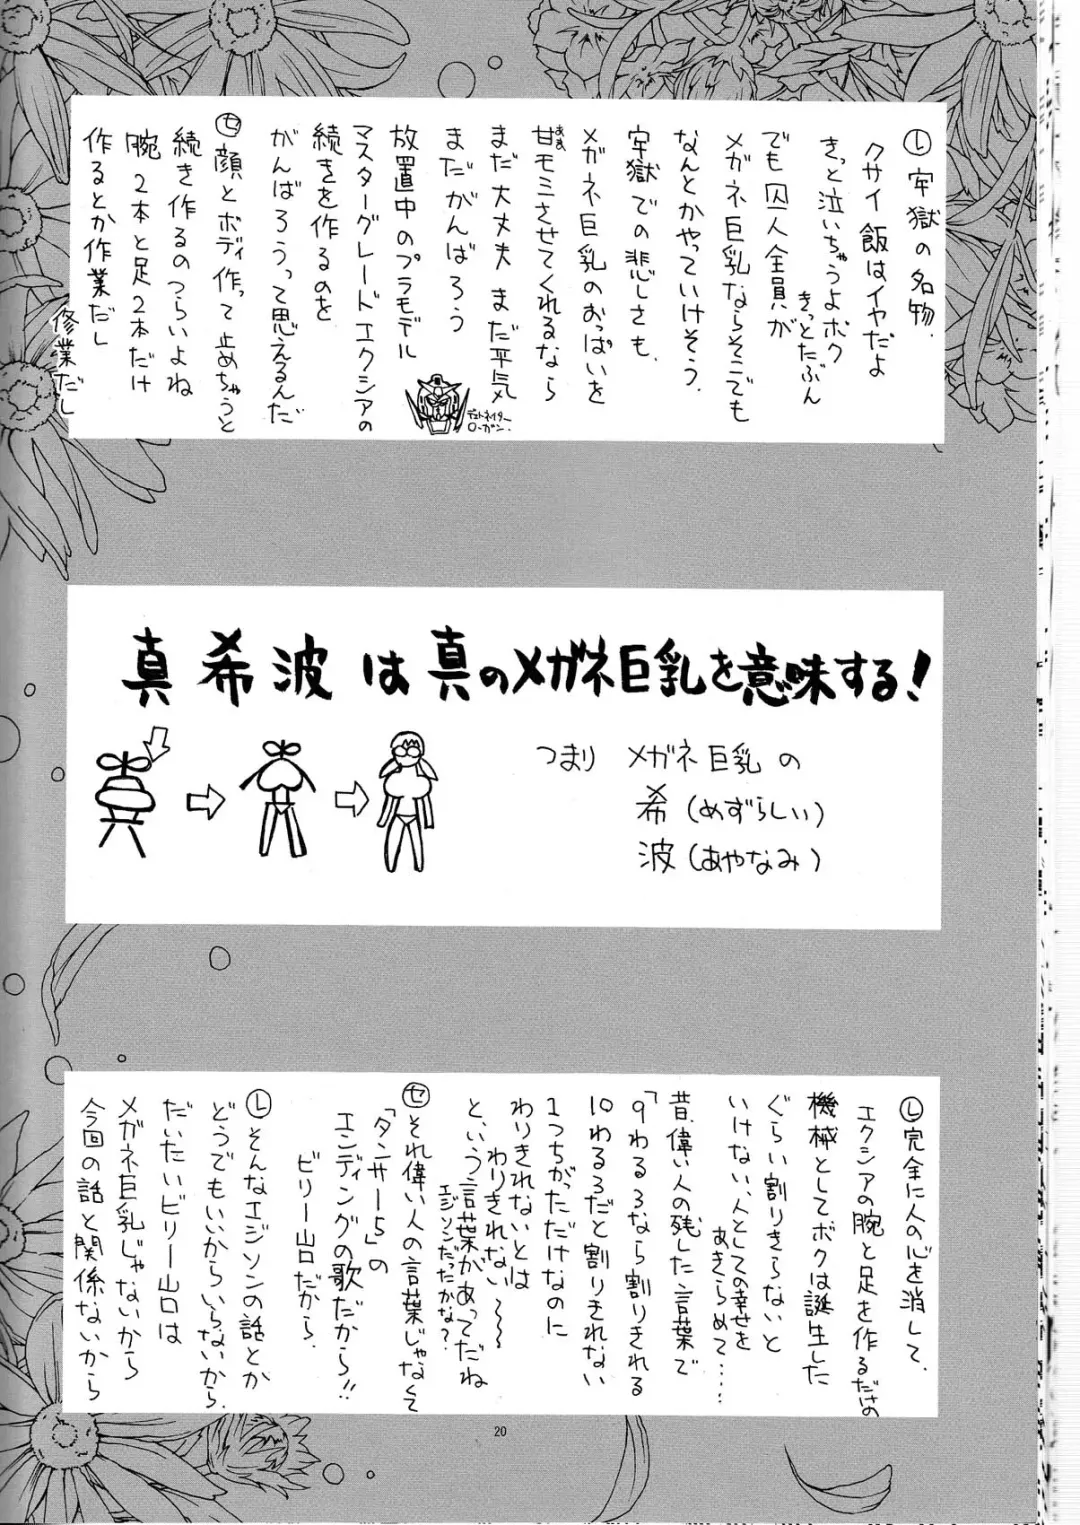 ㋹牢獄の名物、
クサイ飯はイヤだよ
きっと泣いちゃうよボク
きっとたぶん
でも囚人全員が
メガネ巨乳ならそこでも
なんとかやっていけそう、
牢獄での悲しさも、
メガネ巨乳のおっぱいを
甘モミさせてくれるなら
まだ大丈夫 まだ平気
まだがんばろう
放置中のプラモデル
マスターグレードエクシアの
続きを作るのを
がんばろうって思えるんだ
㋝顔とボディ作って止めちゃうと
続き作るのつらいよね
腕2本と足2本だけ
作るとか作業だし
修業だし
真希波は真のメガネ巨乳を意味する!
つまり メガネ巨乳の
希(めずらしい)
波(あやなみ)
㋹完全に人の心を消して、
エクシアの腕と足を作るだけの
機械としてボクは誕生した
ぐらい割りきらないと
いけない、人としての幸せを
あきらめて……
昔、偉い人の残した言葉で
「9わる3なら割りきれる
10わる3だと割りきれない
1つちがっただけなのに
わりきれないとは
わりきれない〜〜
と、いう言葉があってだね
エジソンだったかな?
㋝それ偉い人の言葉じゃなくて
「タンサー5」の
エンディングの歌だから!!
ビリー山口だから、
㋹そんなエジソンの話とか
どうでもいいからいらないから、
だいたいビリー山口は
メガネ巨乳じゃないから
今回の話と関係ないから
20